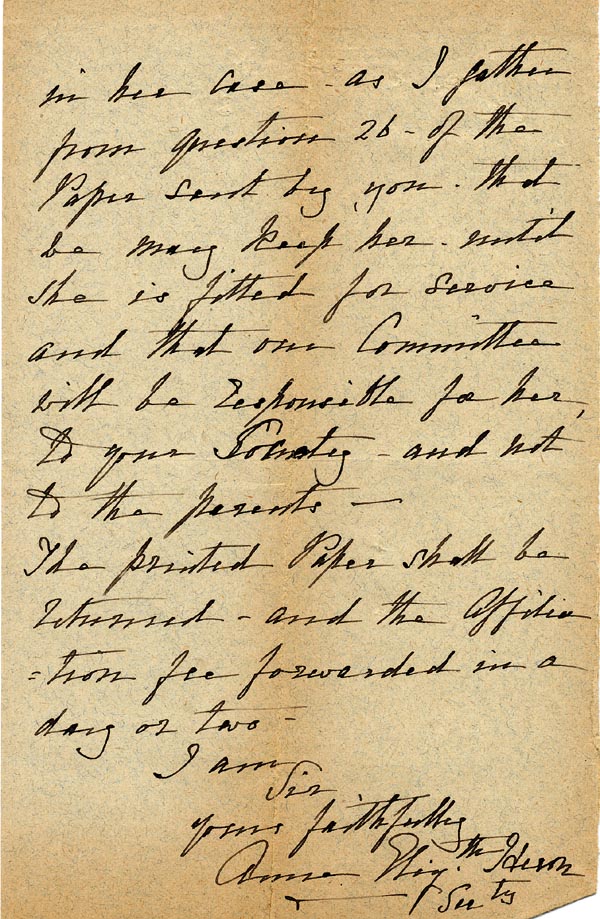 in her case - as I gather
from question 26 - of the
Paper sent by you. that
we may keep her - until
she is fitted for service
and that our Committee
will be responsible for her,
to your Society - and not
to the parents —
The printed Paper shall be
returned - and the Affilia
=tion fee forwarded in a
day or two -
I am
Sir
yours faithfully
Anne Eliz.th
Secty